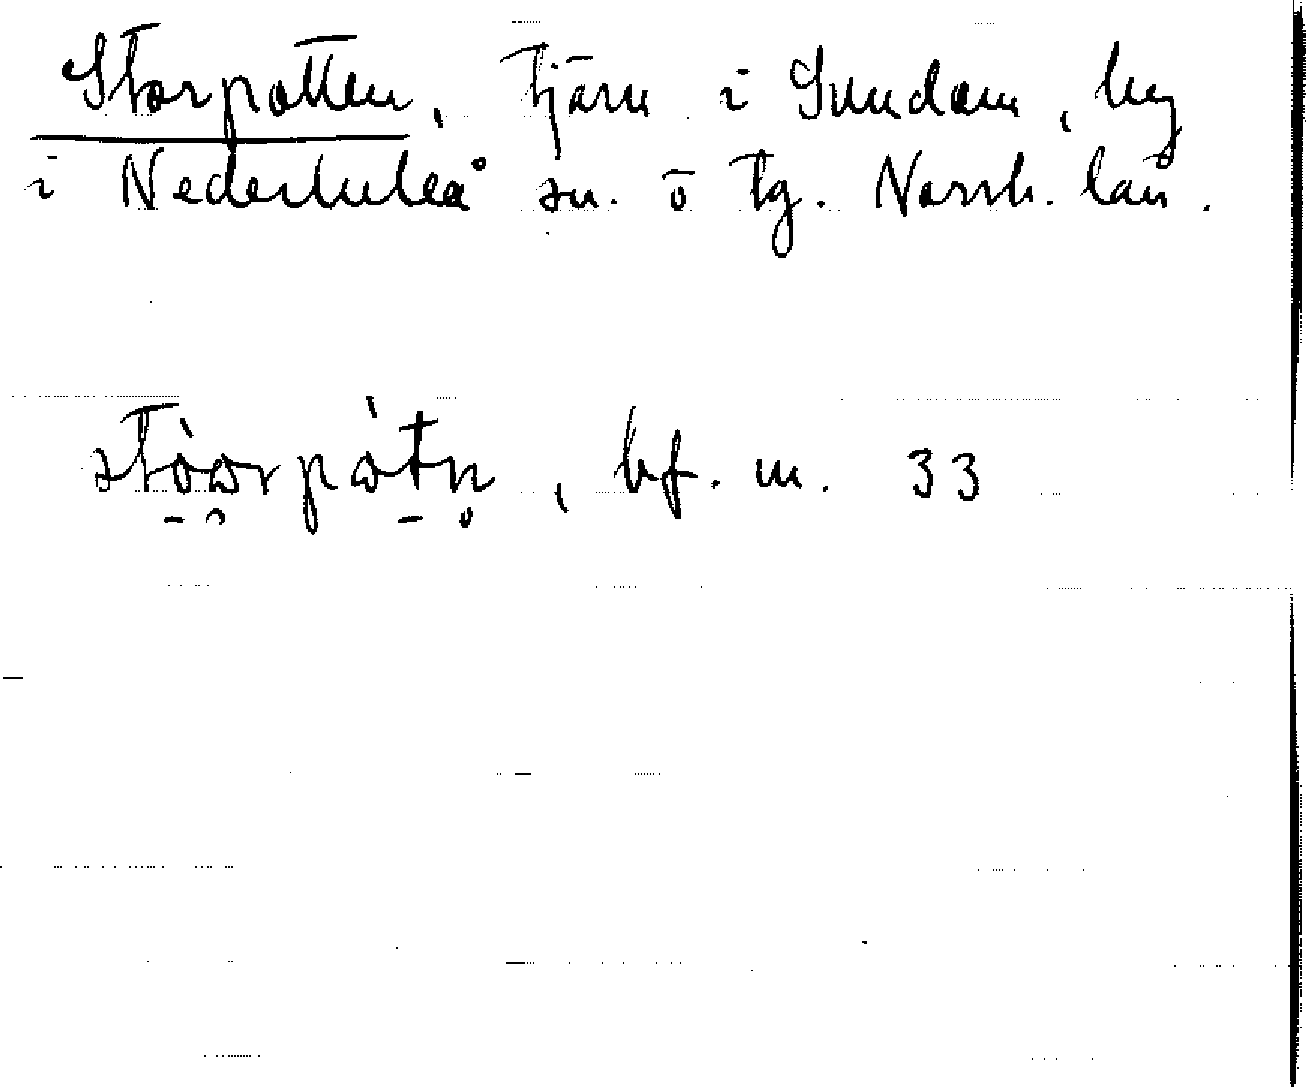 Storpotten, tjärn i Sundom, by
i Nederluleå sn. o tg. Norrb. län.
stòorpòtn, bf. m. 33